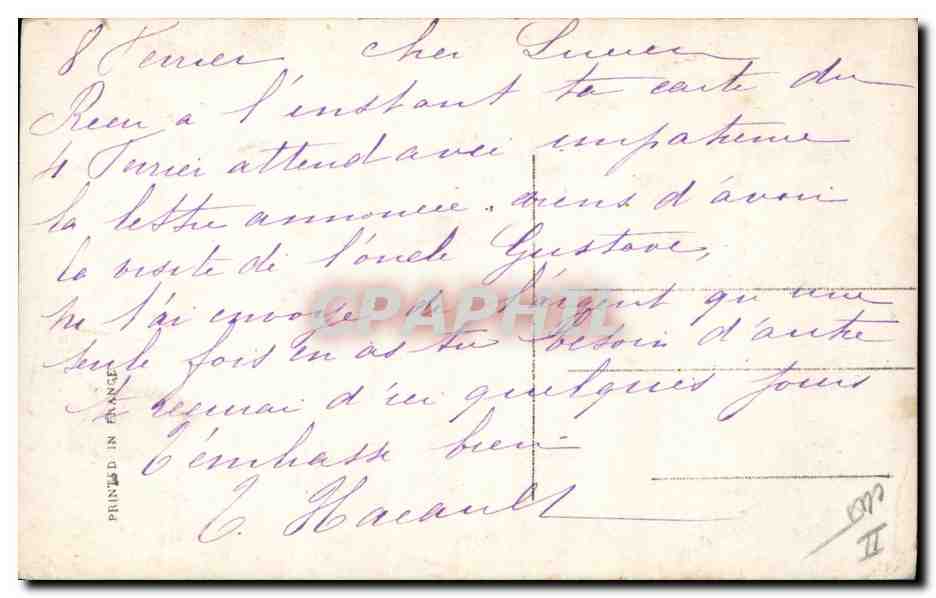 8 Fevrier cher Lucien
Recu a l'instant ta carte du
4 Fevrier attend avec impatience
la lettre annoncée. viens d'avoir
la visite de l'oncle Gustave,
ne t'ai envoyé de l'argent qu'une
seule fois en as tu besoin d'autre
d'ici quelques jours
t'embrasse bien
CPAPHIL
PRINTED IN FRANCE
II